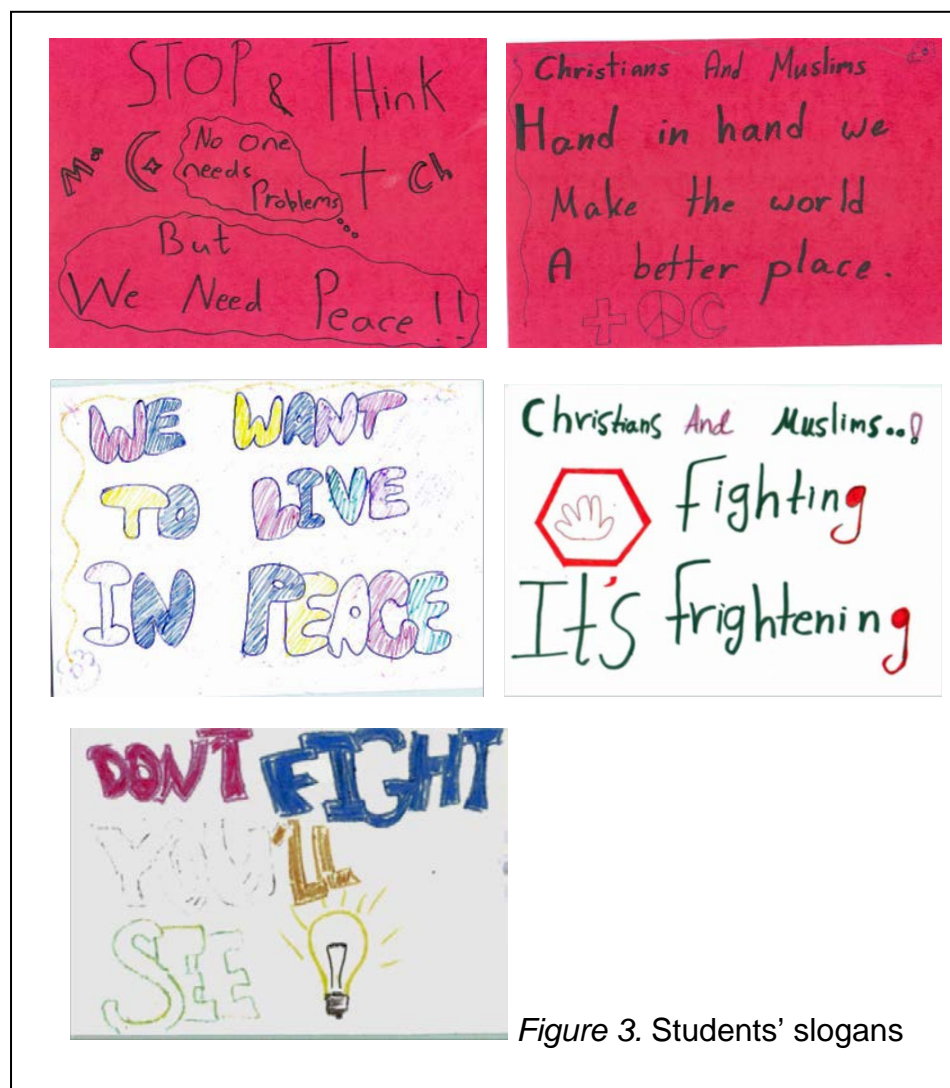 STOP & THink
Mo
No One
needs
Problems
Ch
But
We Need Peace!!
Christians And Muslims
Hand in hand we
Make the world
A better place.
WE WANT
TO LIVE
IN PEACE
Christians And Muslims..!
Fighting
It's frightening
DON'T FIGHT
YOU'LL
SEE
Figure 3. Students' slogans